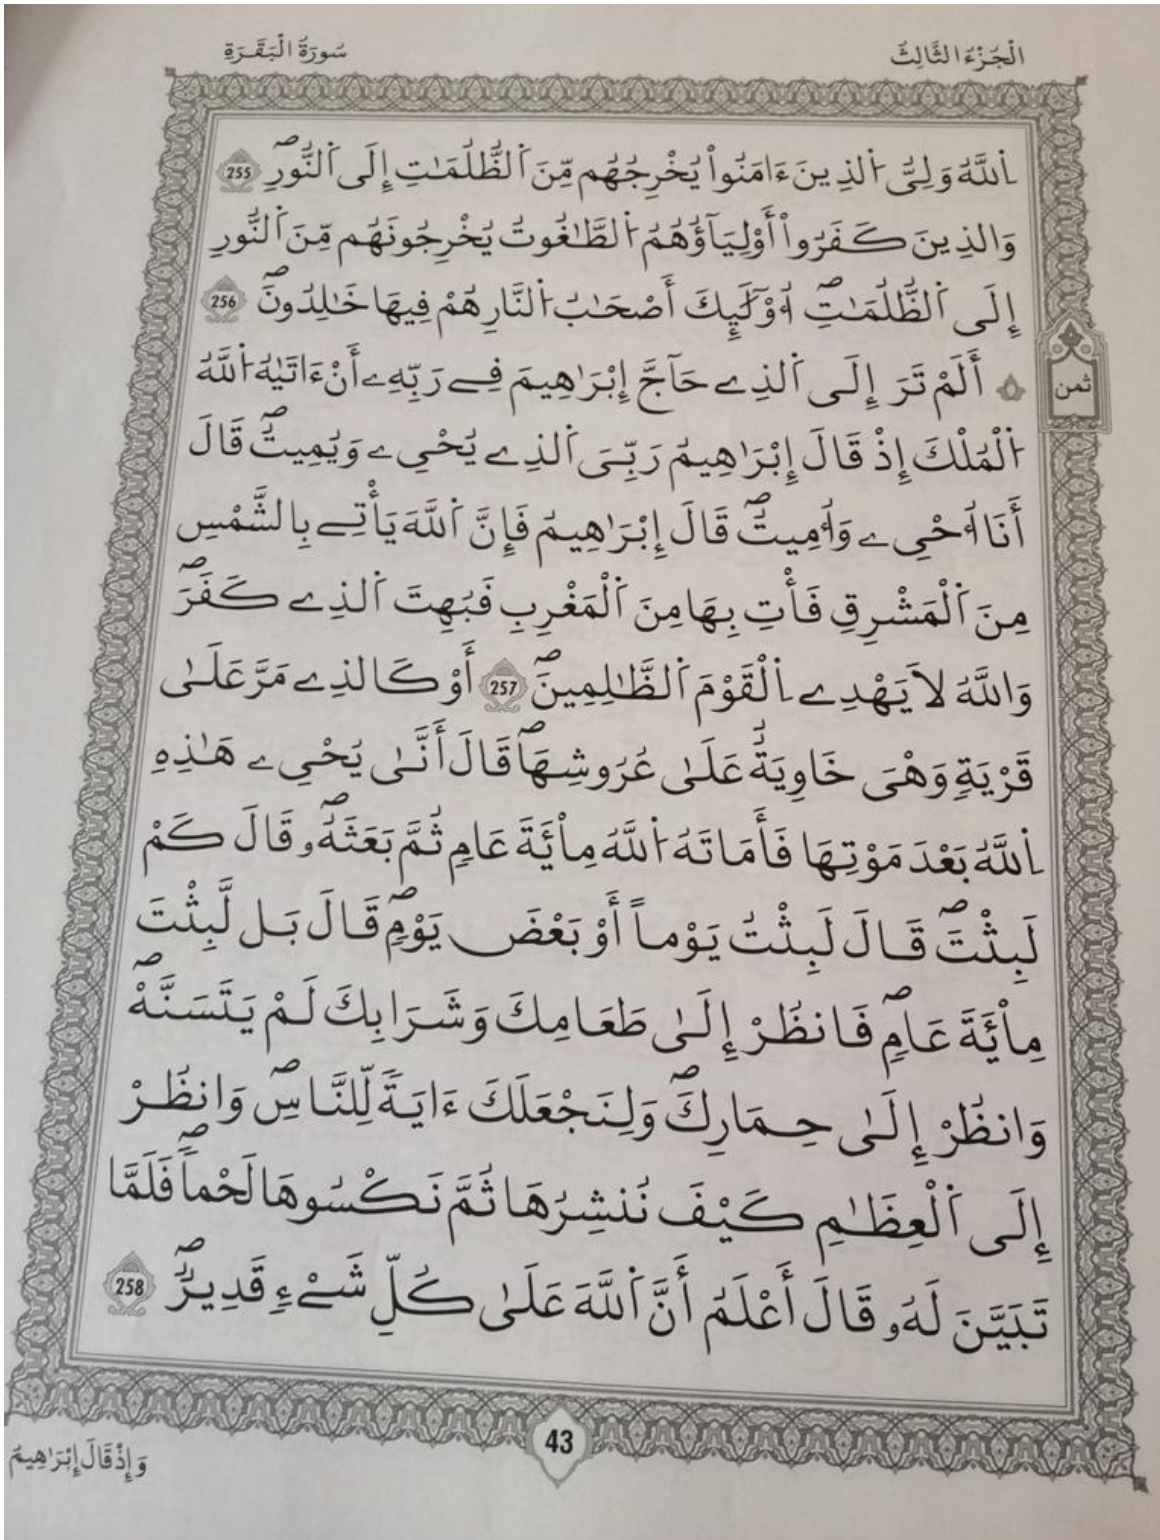 الْجُزْءُ الثَّالِثُ
سُورَةُ الْبَقَرَةِ
اَ۬للَّهُ وَلِيُّ اُ۬لذِينَ ءَامَنُواْ يُخْرِجُهُم مِّنَ اَ۬لظُّلُمَٰتِ إِلَى اَ۬لنُّورِۖ 255
وَالذِينَ كَفَرُواْ أَوْلِيَآؤُهُمُ اُ۬لطَّٰغُوتُ يُخْرِجُونَهُم مِّنَ اَ۬لنُّورِ
إِلَى اَ۬لظُّلُمَٰتِۖ أُوْلَٰٓئِكَ أَصْحَٰبُ اُ۬لنَّارِ هُمْ فِيهَا خَٰلِدُونَۖ 256
۞ أَلَمْ تَرَ إِلَى اَ۬لذِے حَآجَّ إِبْرَٰهِيمَ فِے رَبِّهِۦٓ أَنْ ءَاتَيٰهُ اُ۬للَّهُ
ثمن
اُ۬لْمُلْكَ إِذْ قَالَ إِبْرَٰهِيمُ رَبِّيَ اَ۬لذِے يُحْيِۦ وَيُمِيتُۖ قَالَ
أَنَا أُحْيِۦ وَأُمِيتُۖ قَالَ إِبْرَٰهِيمُ فَإِنَّ اَ۬للَّهَ يَأْتِے بِالشَّمْسِ
مِنَ اَ۬لْمَشْرِقِ فَأْتِ بِهَا مِنَ اَ۬لْمَغْرِبِ فَبُهِتَ اَ۬لذِے كَفَرَۖ
وَاللَّهُ لَا يَهْدِے اِ۬لْقَوْمَ اَ۬لظَّٰلِمِينَۖ 257 أَوْ كَالذِے مَرَّ عَلَىٰ
قَرْيَةٖ وَهْيَ خَاوِيَةٌ عَلَىٰ عُرُوشِهَاۖ قَالَ أَنَّىٰ يُحْيِۦ هَٰذِهِ
اِ۬للَّهُ بَعْدَ مَوْتِهَا فَأَمَاتَهُ اُ۬للَّهُ مِاْئَةَ عَامٖ ثُمَّ بَعَثَهُۥۖ قَالَ كَمْ
لَبِثْتَۖ قَالَ لَبِثْتُ يَوْماً أَوْ بَعْضَ يَوْمٖۖ قَالَ بَل لَّبِثْتَ
مِاْئَةَ عَامٖۖ فَانظُرْ إِلَىٰ طَعَامِكَ وَشَرَابِكَ لَمْ يَتَسَنَّهْۖ
وَانظُرْ إِلَىٰ حِمَارِكَۖ وَلِنَجْعَلَكَ ءَايَةٗ لِّلنَّاسِۖ وَانظُرْ
إِلَى اَ۬لْعِظَٰمِ كَيْفَ نُنشِرُهَا ثُمَّ نَكْسُوهَا لَحْماٗۖ فَلَمَّا
تَبَيَّنَ لَهُۥ قَالَ أَعْلَمُ أَنَّ اَ۬للَّهَ عَلَىٰ كُلِّ شَےْءٖ قَدِيرٌۖ 258
43
وَإِذْ قَالَ إِبْرَٰهِيمُ